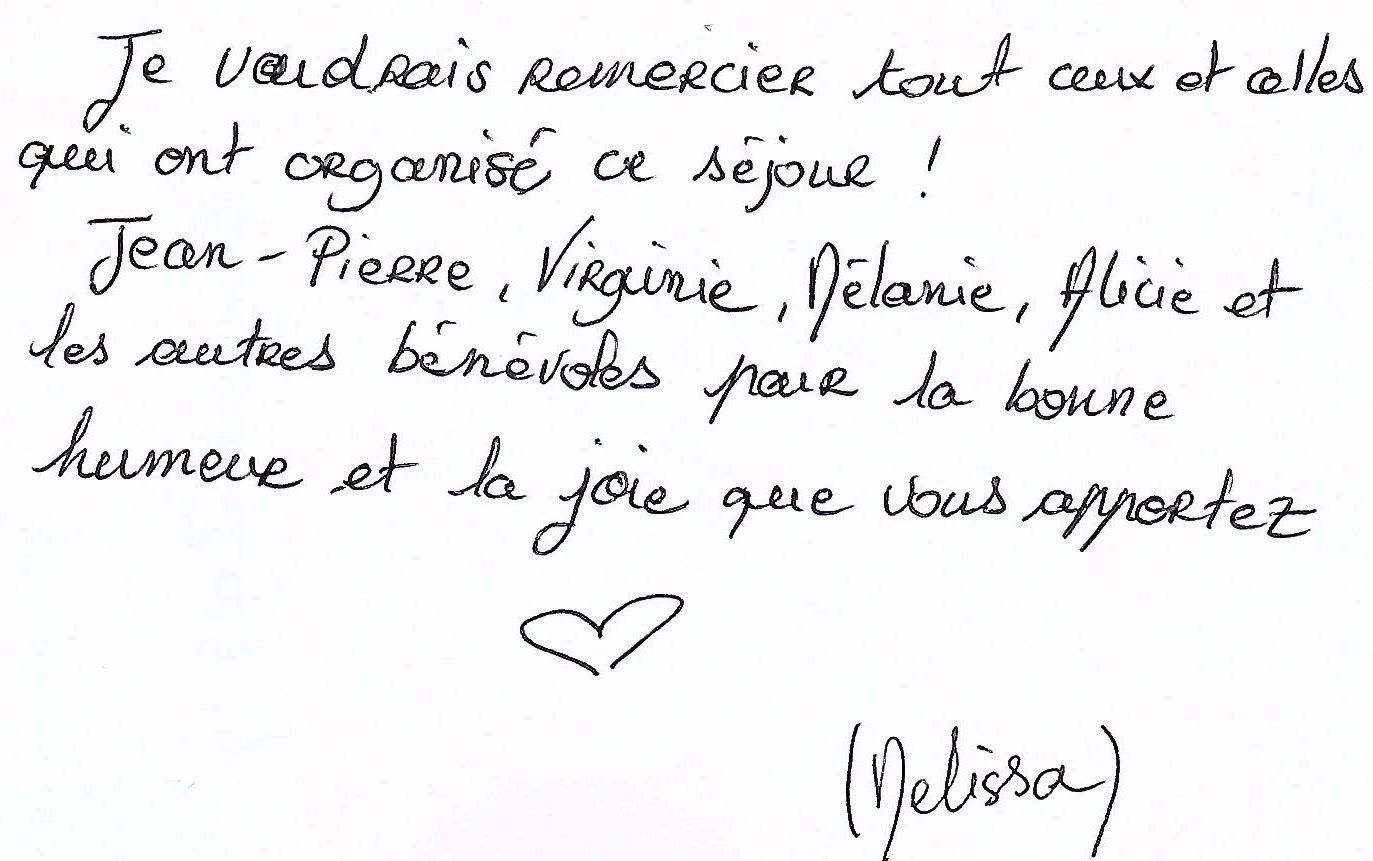 Je voudrais remercier tout ceux et celles
qui ont organisé ce séjour !
Jean-Pierre, Virginie, Mélanie, Alicie et
les autres bénévoles pour la bonne
humeur et la joie que vous apportez
(Melissa)